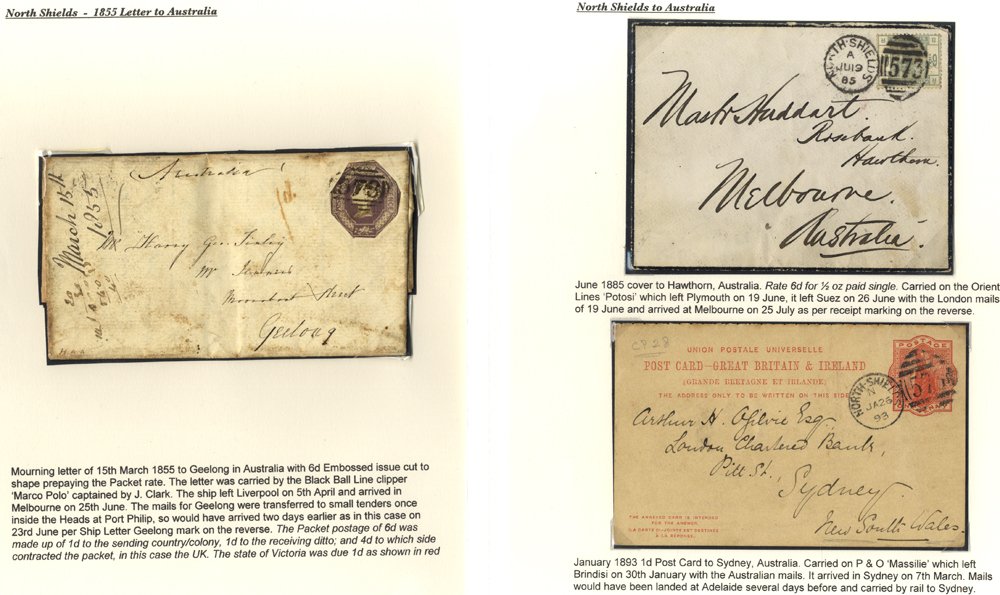 North Shields - 1855 Letter to Australia
Australia
1d.
March 15th
1855
Mr Harry Geo.
Mr
Street
Geelong
Mourning letter of 15th March 1855 to Geelong in Australia with 6d Embossed issue cut to
shape prepaying the Packet rate. The letter was carried by the Black Ball Line clipper
'Marco Polo' captained by J. Clark. The ship left Liverpool on 5th April and arrived in
Melbourne on 25th June. The mails for Geelong were transferred to small tenders once
inside the Heads at Port Philip, so would have arrived two days earlier as in this case on
23rd June per Ship Letter Geelong mark on the reverse. The Packet postage of 6d was
made up of 1d to the sending country/colony, 1d to the receiving ditto; and 4d to which side
contracted the packet, in this case the UK. The state of Victoria was due 1d as shown in red
North Shields to Australia
NORTH-SHIELDS
A
JU19
85
573
Mastr Huddart.
Rosebank.
Hawthorn.
Melbourne.
Australia.
June 1885 cover to Hawthorn, Australia. Rate 6d for ½ oz paid single. Carried on the Orient
Lines 'Potosi' which left Plymouth on 19 June, it left Suez on 26 June with the London mails
of 19 June and arrived at Melbourne on 25 July as per receipt marking on the reverse.
CP 28
UNION POSTALE UNIVERSELLE
POST CARD–GREAT BRITAIN & IRELAND
(GRANDE BRETAGNE ET IRLANDE)
THE ADDRESS ONLY TO BE WRITTEN ON THIS SIDE
POSTAGE
NORTH-SHIELDS
N
JA26
93
Arthur H. Ogilvie Esq.
London Chartered Bank,
Pitt St.,
Sydney
New South Wales.
THE ANNEXED CARD IS INTENDED
FOR THE ANSWER.
LA CARTE CI-JOINTE EST DESTINÉE
À LA RÉPONSE.
January 1893 1d Post Card to Sydney, Australia. Carried on P & O 'Massilie' which left
Brindisi on 30th January with the Australian mails. It arrived in Sydney on 7th March. Mails
would have been landed at Adelaide several days before and carried by rail to Sydney.